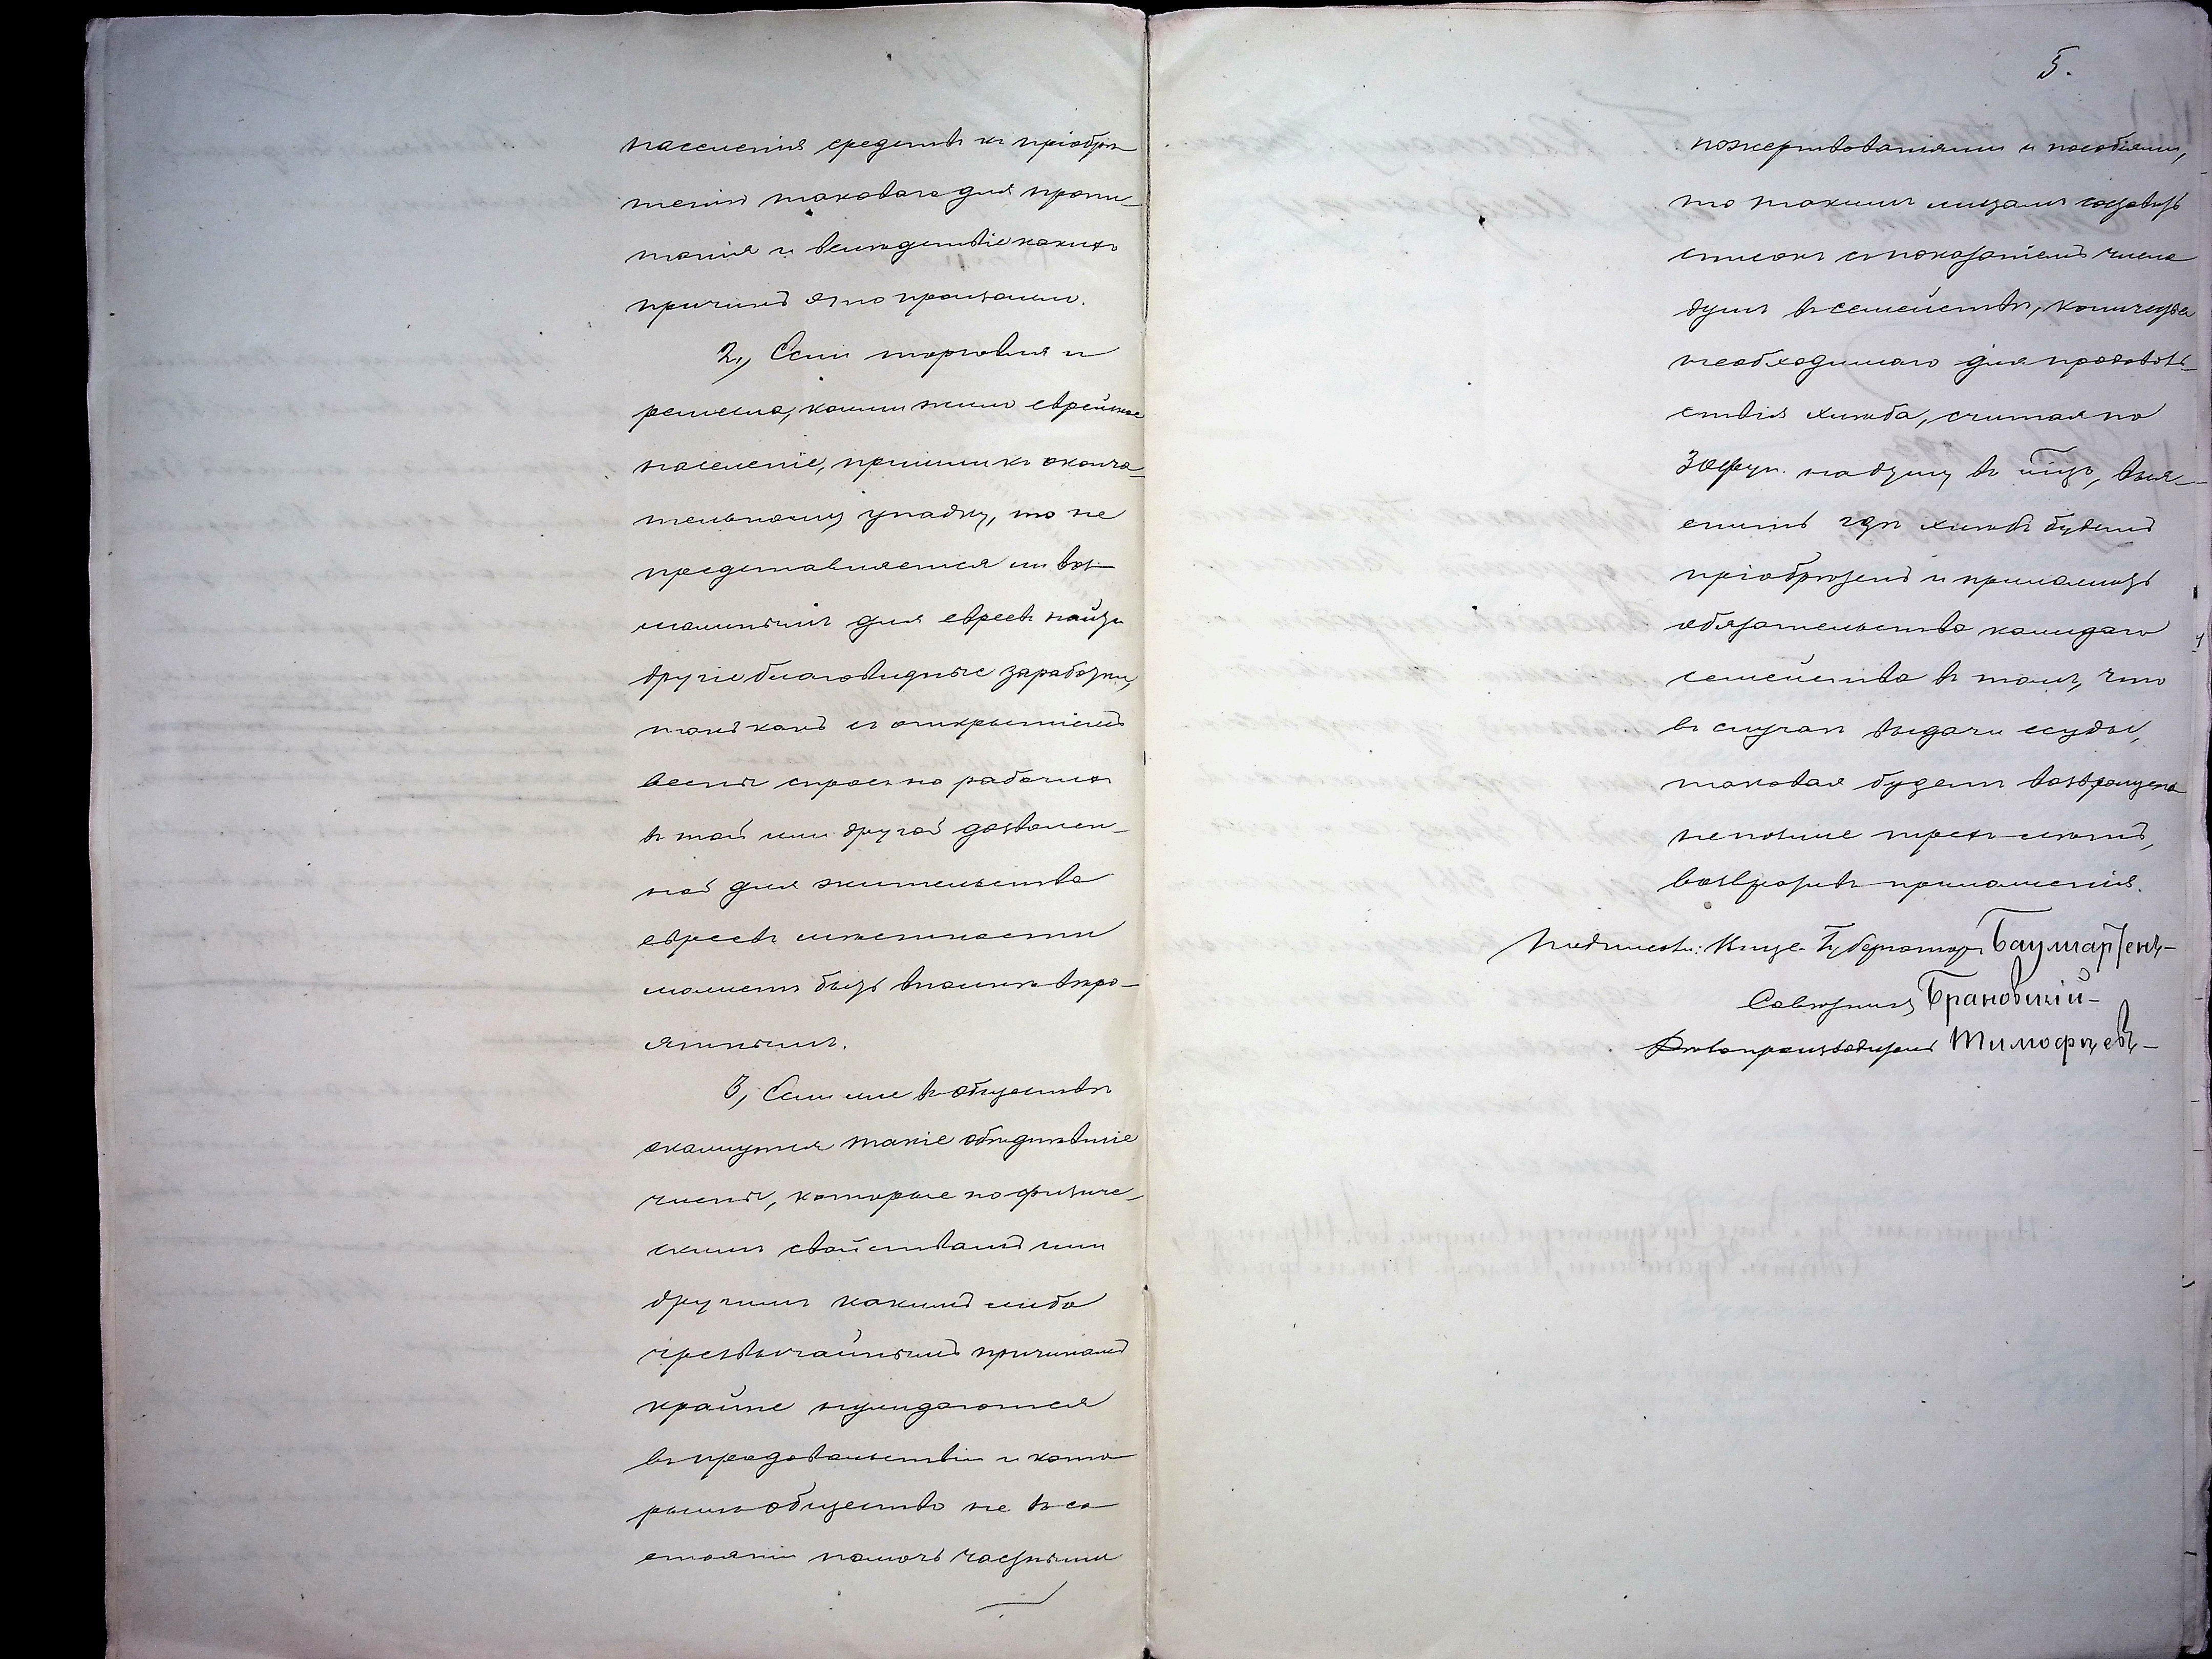 населенія средствъ къ пріобрѣ-
тенію таковаго для пропи-
танія и вслѣдствіе какихъ
причинъ это произошло.
2., Если торговля и
ремесла, коими жило еврейское
населеніе, пришли къ оконча-
тельному упадку, то не
представляется ли воз-
можнымъ для евреевъ найти
другіе благовидные заработки,
такъ какъ съ открытіемъ
весны спросъ на рабочихъ
въ той или другой дозволен-
ной для жительства
евреевъ мѣстности
можетъ быть вполнѣ вѣро-
ятнымъ.
3, Если же въ обществѣ
окажутся такіе обѣднѣвшіе
члены, которые по физиче-
скимъ свойствамъ или
другимъ какимъ либо
чрезвычайнымъ причинамъ
крайне нуждаются
въ продовольствіи и кото
рымъ общество не въ со-
стояніи помочь частными
5.
пожертвованіями и пособіями,
то такимъ лицамъ составить
списокъ съ показаніемъ числа
душъ въ семействѣ, количества
необходимаго для продоволь-
ствія хлѣба, считая по
30 фун. на душу въ мѣсяцъ, выя-
снить гдѣ хлѣбъ будетъ
пріобрѣтенъ и приложить
обязательство каждаго
семейства въ томъ, что
въ случаѣ выдачи ссуды,
таковая будетъ возвращена
не позже трехъ лѣтъ,
возвративъ приложенія.
Подписали: Вице-Губернаторъ Баумгартенъ-
Совѣтникъ Брановскій-
Дѣлопроизводитель Тимофѣевъ-